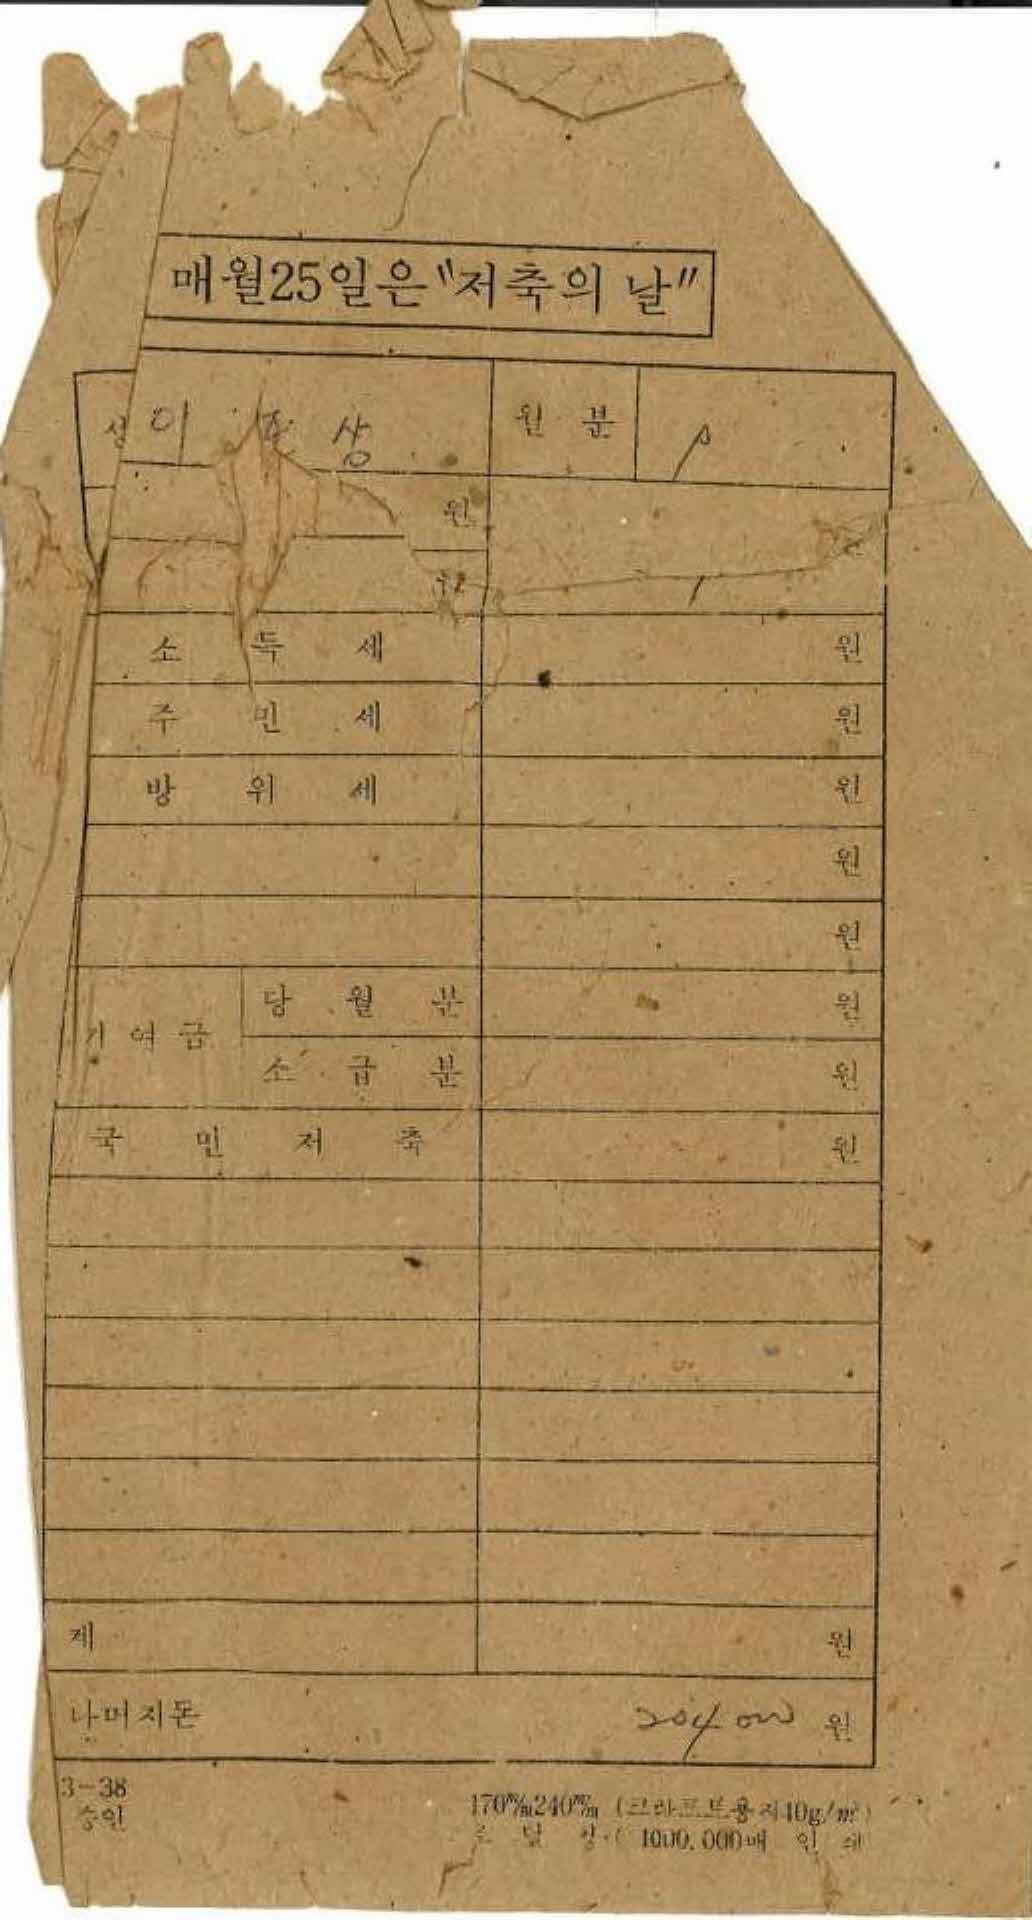 매월25일은 "저축의 날"
성 이 상 월 분
원
원
소 득 세 원
주 민 세 원
방 위 세 원
원
원
기 여 금 당 월 분 원
소 급 분 원
국 민 저 축 원
계 원
나머지돈 204,000 원
3-38
승인
170㎜240㎜ (크라프트용지40g/㎡)
1000,000매 인 쇄